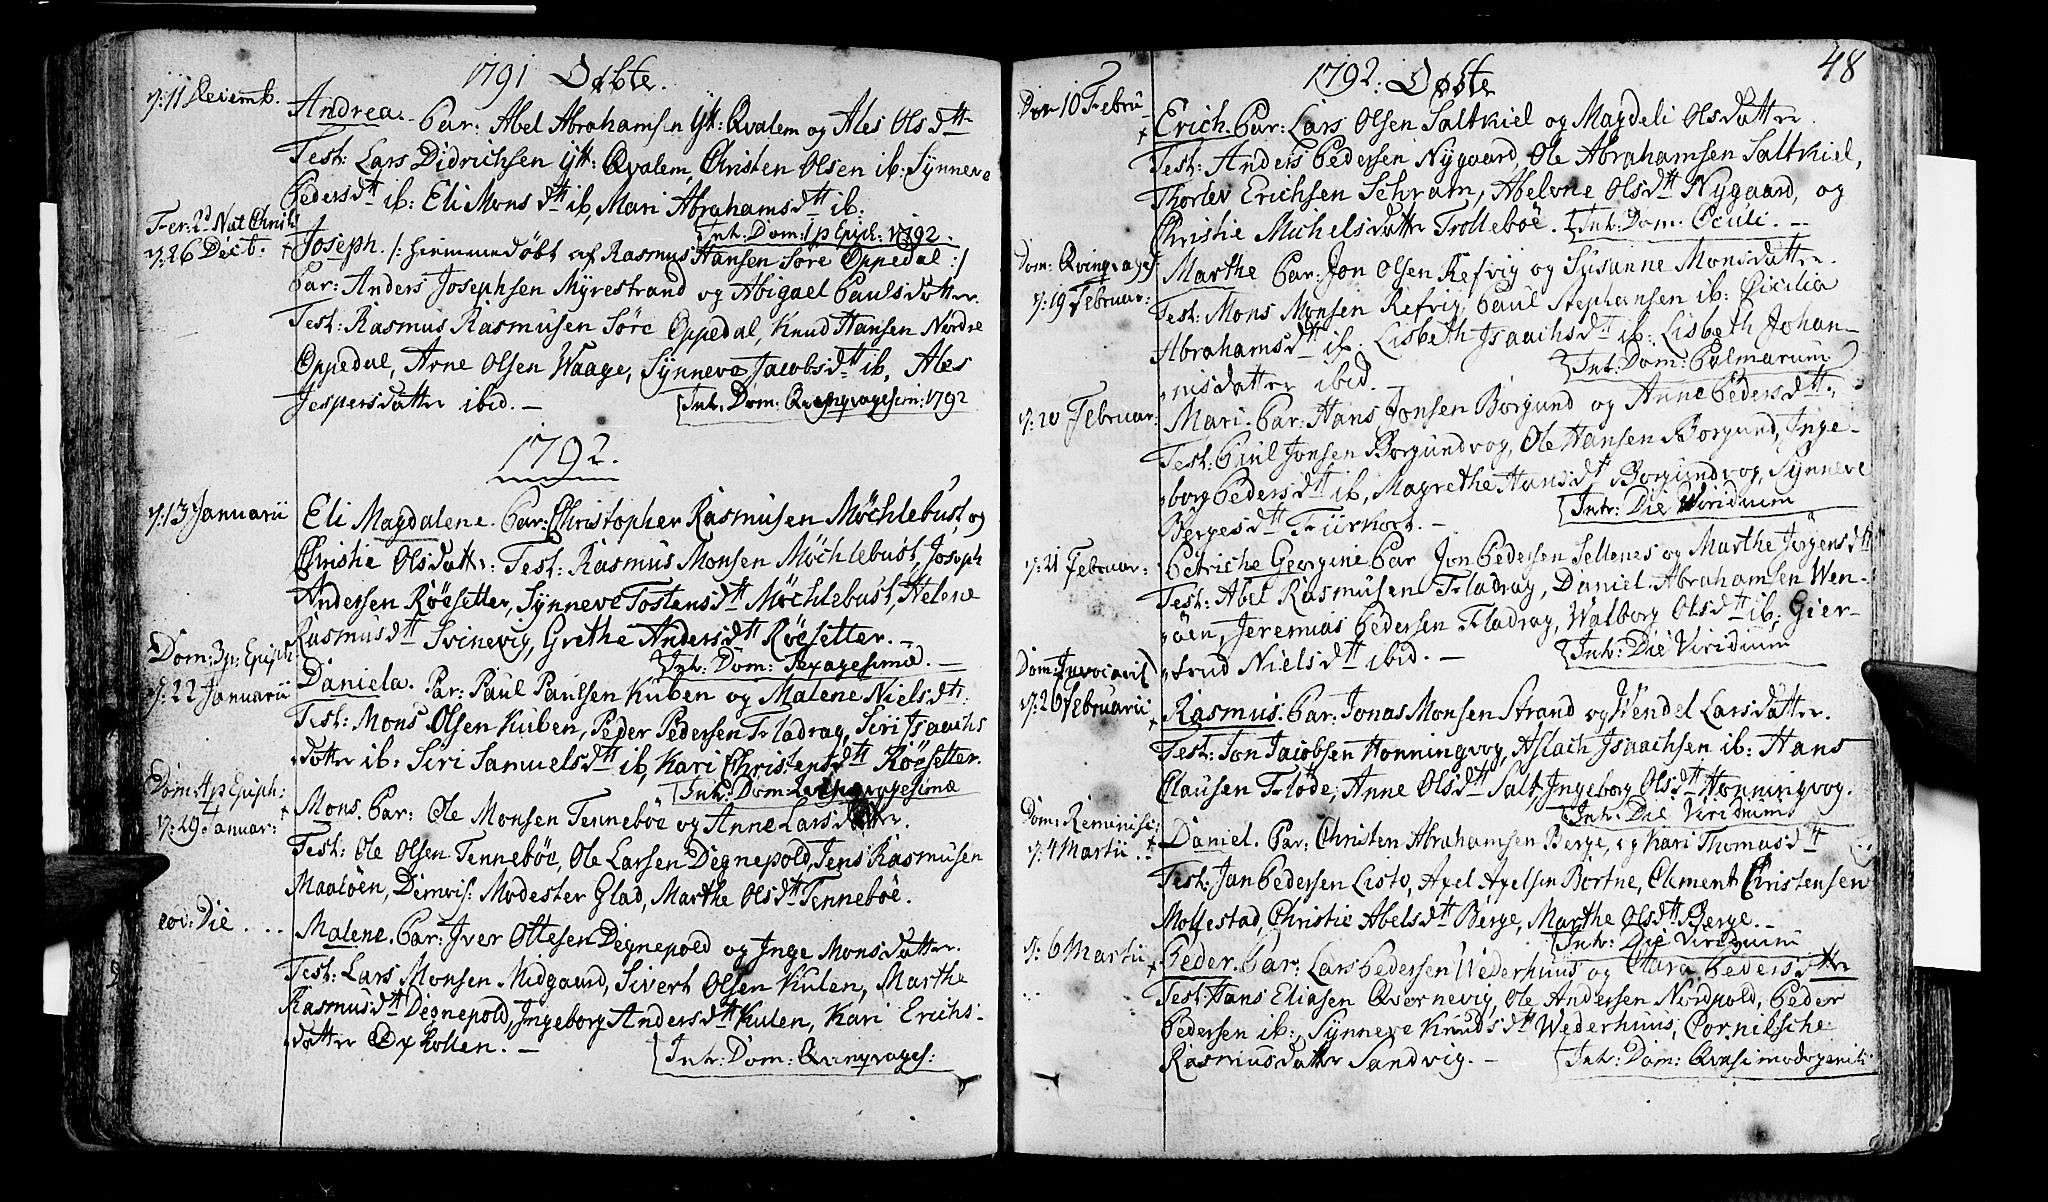 1791 Døbte.
d: 11 Decemb.
Andrea. Par: Abel Abrahamsen ytt: Qvalem og Ales Olsdtt
Test: Lars Didrichsen ytt: Qvalem, Christen Olsen ib: Synneve
Pedersdtt ib: Eli Monsdtt ib, Mari Abrahamsdtt ib:
Int: Dom: 1 p Epiph: 1792.
Fer: 2d Nat Christi
d: 26 Dect:
Joseph. /: hiemmedøbt af Rasmus Hansen Søre Oppedal :/
Par: Anders Josephsen Myrestrand og Abigael Paulsdatter.
Test: Rasmus Rasmusen Søre Oppedal, Knud Hansen Nordre
Oppedal, Arne Olsen Waage, Synneve Jacobsdtt ib, Ales
Jespersdatter ibid. –
Int: Dom: Qvinqvagesim: 1792
1792.
d: 13 Januarii
Eli Magdalene. Par: Christopher Rasmusen Möchlebust og
Christie Olsdatt: Test: Rasmus Monsen Möchlebust, Joseph
Andersen Röesetter, Synneve Tostensdtt Möchlebust, Helene
Rasmusdtt Svinevig, Grethe Andersdtt Röesetter. –
Int: Dom: Sexagesimæ. –
Dom: 3 p: Epiph:
d: 22 Januarii
Daniela. Par: Paul Paulsen Kuben og Malene Nielsdtt.
Test: Mons Olsen Kuben, Peder Pedersen Fladrag, Siri Isaachs
datter ib: Siri Samuelsdtt ib, Kari Christensdtt Röesetter.
Int: Dom: Qvinqvagesimæ
Dom: 4 p Epiph:
d: 29 Januar:
Mons. Par: Ole Monsen Tenneböe og Anne Larsdatter.
Test: Ole Olsen Tenneböe, Ole Larsen Degnepold, Jens Rasmusen
Maalöen, Dimis: Modester Glad, Marthe Olsdtt Tenneböe.
eod: Die . . . .
Malene. Par: Iver Ottesen Degnepold og Inge Monsdatter.
Test: Lars Monsen Midgaard, Sivert Olsen Kulen, Marthe
Rasmusdtt Degnepold, Ingeborg Andersdtt Kulen, Kari Erichs-
datter ibid. –
Int: Dom: Qvinqvages:
48
1792: Døbte
Den 10 Febru
Erich. Par: Lars Olsen Saltkiel og Magdeli Olsdatter
Test: Anders Pedersen Nygaard, Ole Abrahamsen Saltkiel,
Thorlev Erichsen Schram, Abelone Olsdtt Nygaard, og
Christie Michelsdatter Trolleböe. Int: Dom: Oculi. –
Dom: Qvinqvages
d: 19 Februar:
Marthe Par: Jon Olsen Refvig og Susanne Monsdatter.
Test: Mons Monsen Refvig, Paul Stephansen ib: Cicilia
Abrahamsdtt ib: Lisbeth Isaachsdtt ib: Lisbeth Johan-
nisdatter ibid. –
Int: Dom: Palmarum
d: 20 Februar:
Mari. Par: Hans Jonsen Borgund og Anne Pedersdtt.
Test: Paul Jonsen Borgundvog, Ole Hansen Borgund, Inge-
borg Pedersdtt ib, Magrethe Hansdtt Borgundvog, Synneve
Børgesdtt Fiirkort. –
Int: Die Viridium
d: 21 Februar:
Petriche Georgine Par Jon Pedersen Sellenes og Marthe Jörgensdtt
Test: Abel Rasmusen Fladrag, Daniel Abrahamsen Wen-
öen, Jeremias Pedersen Fladrag, Walborg Olsdtt ib, Gier-
trud Nielsdtt ibid. –
Int: Die Viridium
Dom: Invocavit
d: 26 Februarii
Rasmus. Par: Jonas Monsen Strand og Wendel Larsdatter.
Test: Jon Jacobsen Honningvog, Aslach Isaachsen ib: Hans
Clausen Flöde, Anne Olsdtt Salt, Ingeborg Olsdtt Honningvog.
Int: Die Viridium
Dom: Reminisc:
d: 4 Martii . .
Daniel. Par: Christen Abrahamsen Berge, og Kari Thomasdtt
Test: Jan Pedersen Listö, Axel Axelsen Bortne, Clement Christensen
Mollestad, Christie Abelsdtt Berge, Marthe Olsdtt Berge.
Int: Die Viridium
d: 6 Martii
Peder. Par: Lars Pedersen Wederhuus og Clara Pedersdatter
Test: Hans Eliasen Qvernevig, Ole Andersen Nordpold, Peder
Pedersen ib: Synneve Knudsdtt Wederhuus, Cornilsche
Rasmusdatter Sandvig. –
Int: Dom: Qvasimodogeniti